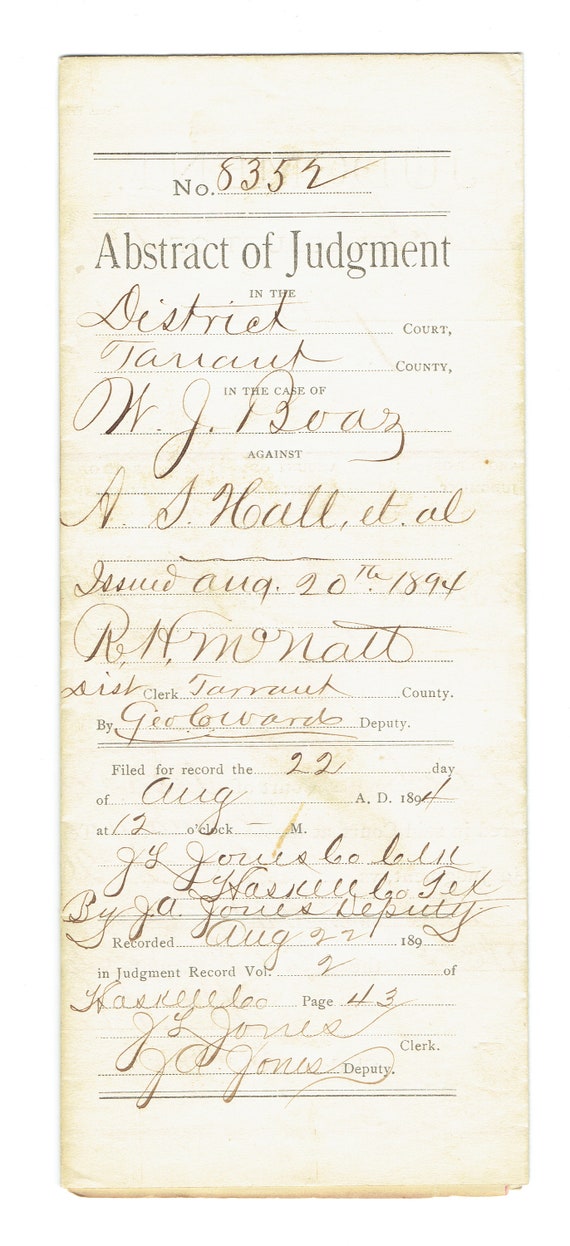 No. 8352
Abstract of Judgment
IN THE
District COURT,
Tarrant COUNTY,
IN THE CASE OF
W. J. Boaz
AGAINST
A. S. Hall, et. al
Issued Aug. 20th 1894
R. H. McNatt
Dist Clerk Tarrant County.
By Geo C Wards Deputy.
Filed for record the 22 day
of Aug A. D. 1894
at 12 o'clock — M.
J L Jones Co Clk
Haskell Co Tex
By J. A. Jones Deputy
Recorded Aug 22 189
in Judgment Record Vol. 2 of
Haskell Co Page 43
J L Jones
Clerk.
J A Jones Deputy.